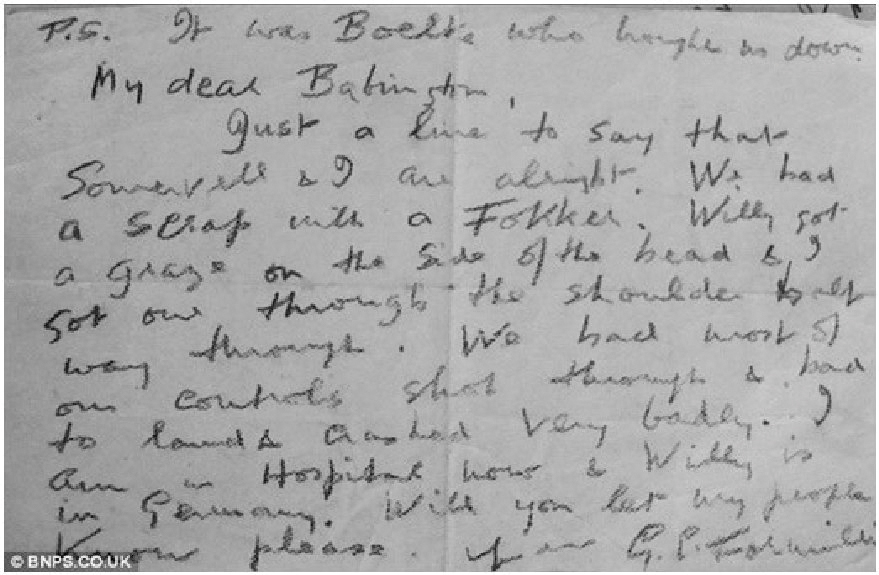 P.S. It was Boelke who brought us down.
My dear Babington,
Just a line to say that
Somervell & I are alright. We had
a scrap with a Fokker. Willy got
a graze on the side of the head & I
got one through the shoulder half
way through. We had most of
our controls shot through & had
to land & crashed very badly. I
am in Hospital now & Willy is
in Germany. Will you let my people
know please. G.P. Formilli
© BNPS.CO.UK